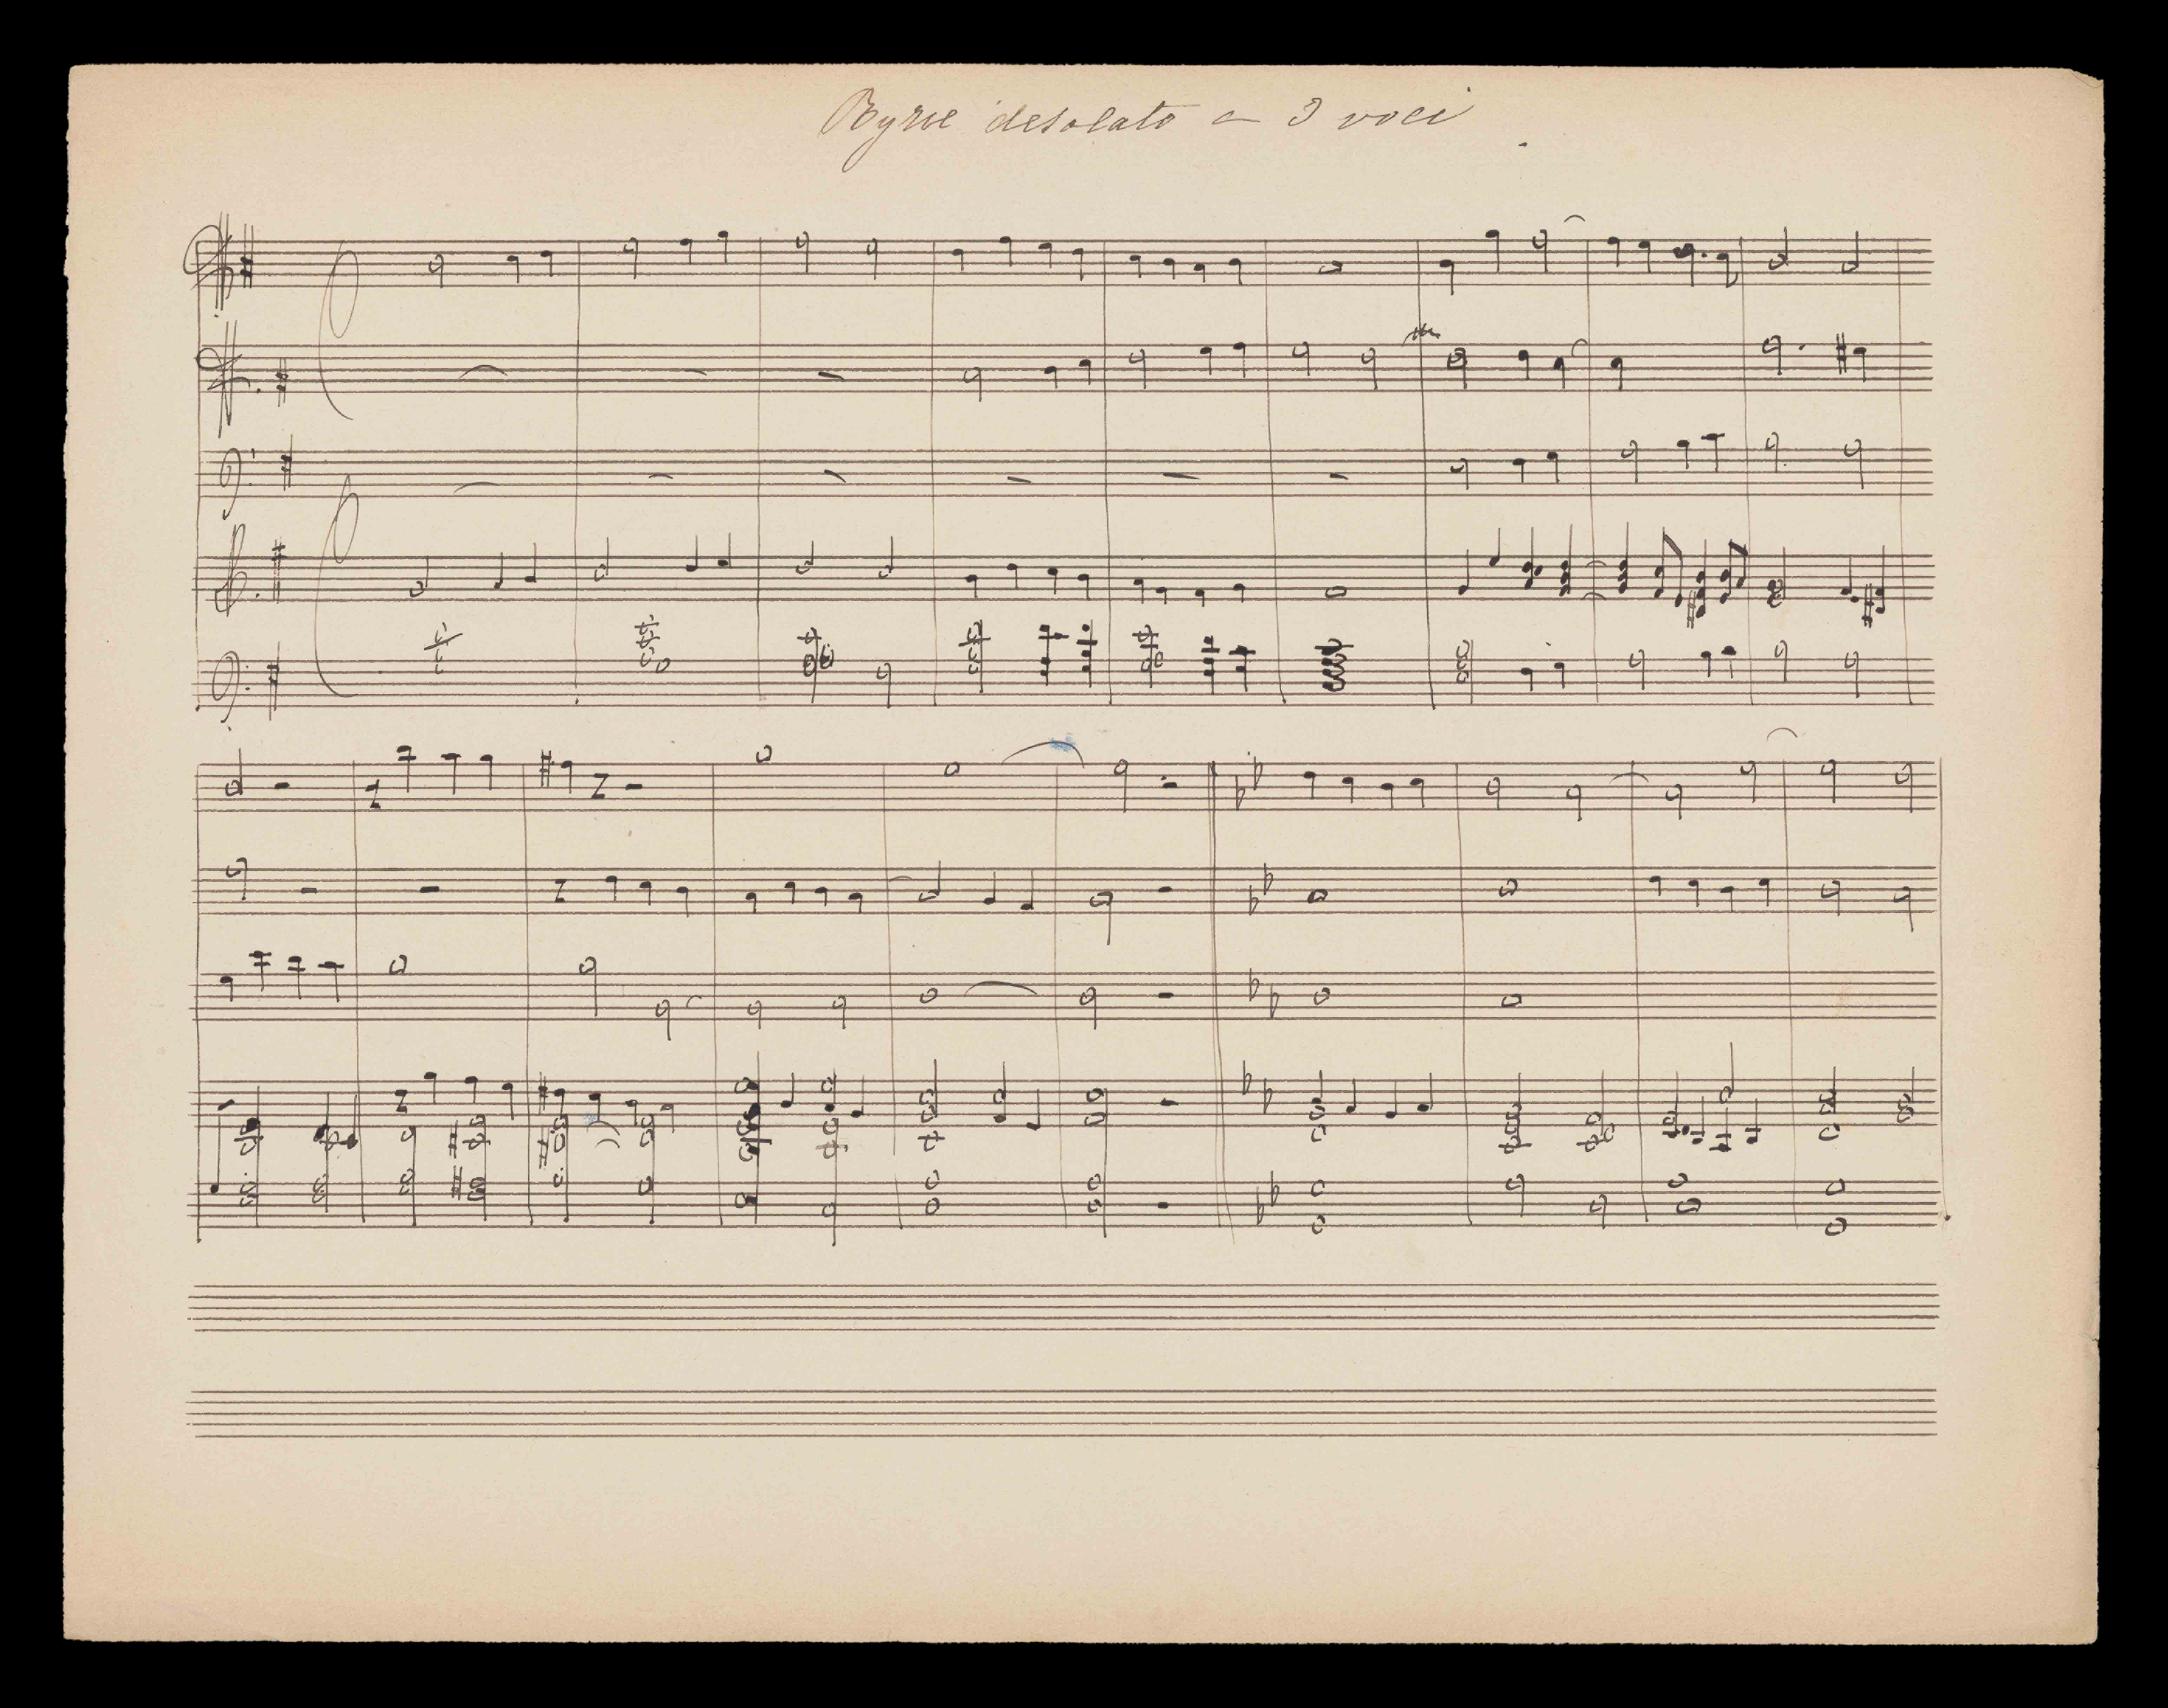 Byrne desolato a 3 voci